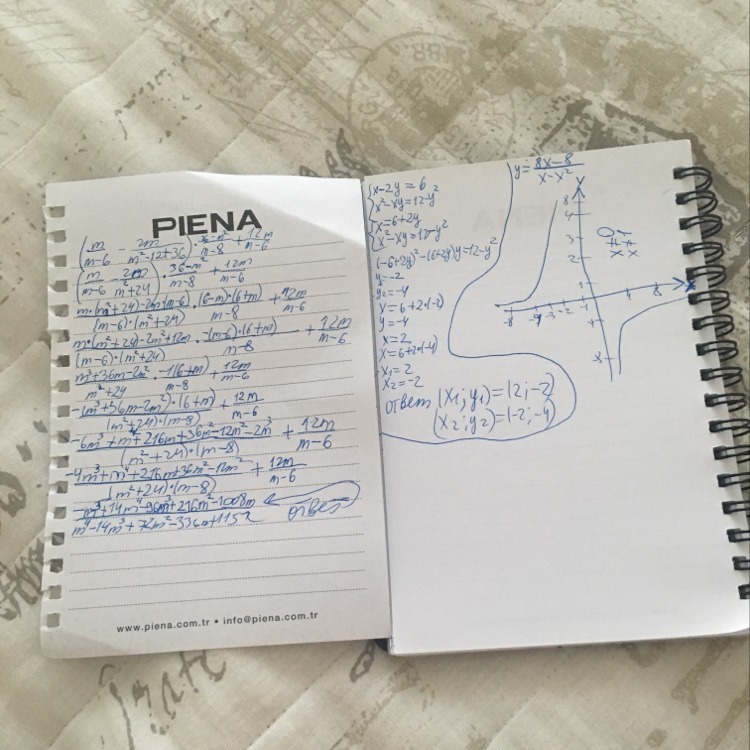 PIENA
(m/m-6 - 2m/m²-12+36) · 36-m²/m-8 + 12m/m-6
(m/m-6 - 2m/m²+24) · 36-m²/m-8 + 12m/m-6
m·(m²+24)-2m·(m-6)/(m-6)·(m²+24) · (6-m)·(6+m)/m-8 + 12m/m-6
m·(m²+24)-2m²+12m/(m-6)·(m²+24) · -(m-6)·(6+m)/m-8 + 12m/m-6
m³+36m-2m²/m²+24 · -1(6+m)/m-8 + 12m/m-6
-(m³+36m-2m²)·(6+m)/(m²+24)·(m-8) + 12m/m-6
-6m³+m⁴+216m+36m²-12m²-2m³/(m²+24)·(m-8) + 12m/m-6
-4m³+m⁴+216m+36m²-12m²/(m²+24)·(m-8) + 12m/m-6
m⁴-14m³+72m²-336m+1152
ответ
www.piena.com.tr • info@piena.com.tr
{x-2y=6
x²-xy=12-y²
{x=6+2y
x²-xy=12-y²
(-6+2y)²-(6+2y)y=12-y²
y=-2
y₂=-4
x=6+2·(-2)
y=-4
x=2
x=6+2·(-4)
x₁=2
x₂=-2
ответ (x₁;y₁)=(2;-2)
(x₂;y₂)=(-2;-4)
y=8x-8/x-x²
y
8
4
3
2
1
-8 -4 -3 -2 -1
1 8
x